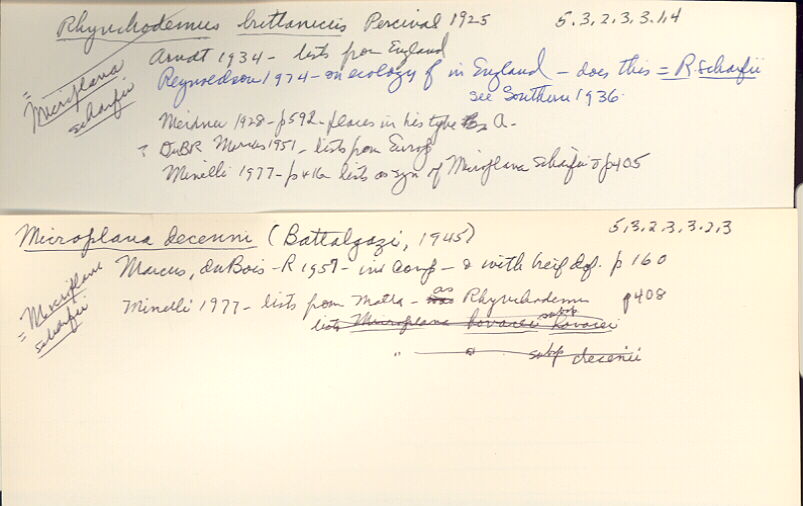 Rhynchodemus brittanicus Percival 1925 5.3.2.3.3.1.4
Arndt 1934 - lists from England
Reynoldson 1974 - on ecology of in England - does this = R. scharfii
see Southern 1936
= Microplana scharfii
Meixner 1928 - p 592 - places in his type A -
? DuBR Marcus 1951 - lists from Europ
Minelli 1977 - p 416 lists as syn of Microplana scharfii p 405
Microplana decenni (Battalgazi, 1945) 5,3,2,3,3,2,3
= Microplana scharfii
Marcus, duBois-R 1957 - in with p 160
Minelli 1977 - lists from Malta - as Rhynchodemus p 408
lists Microplana kovacsi subsp kovacsi
" subsp decenii